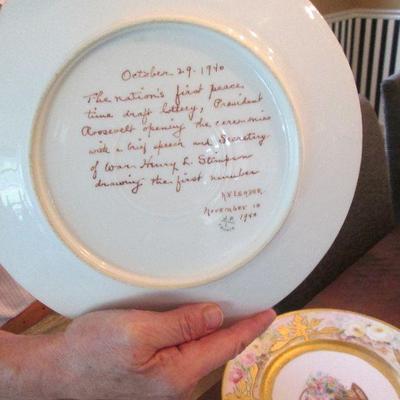 October 29-1940
The nation's first peace
time draft lottery, President
Roosevelt opening the ceremonies
with a brief speech and Secretary
of War Henry L. Stimson
drawing the first number
November 10
1940